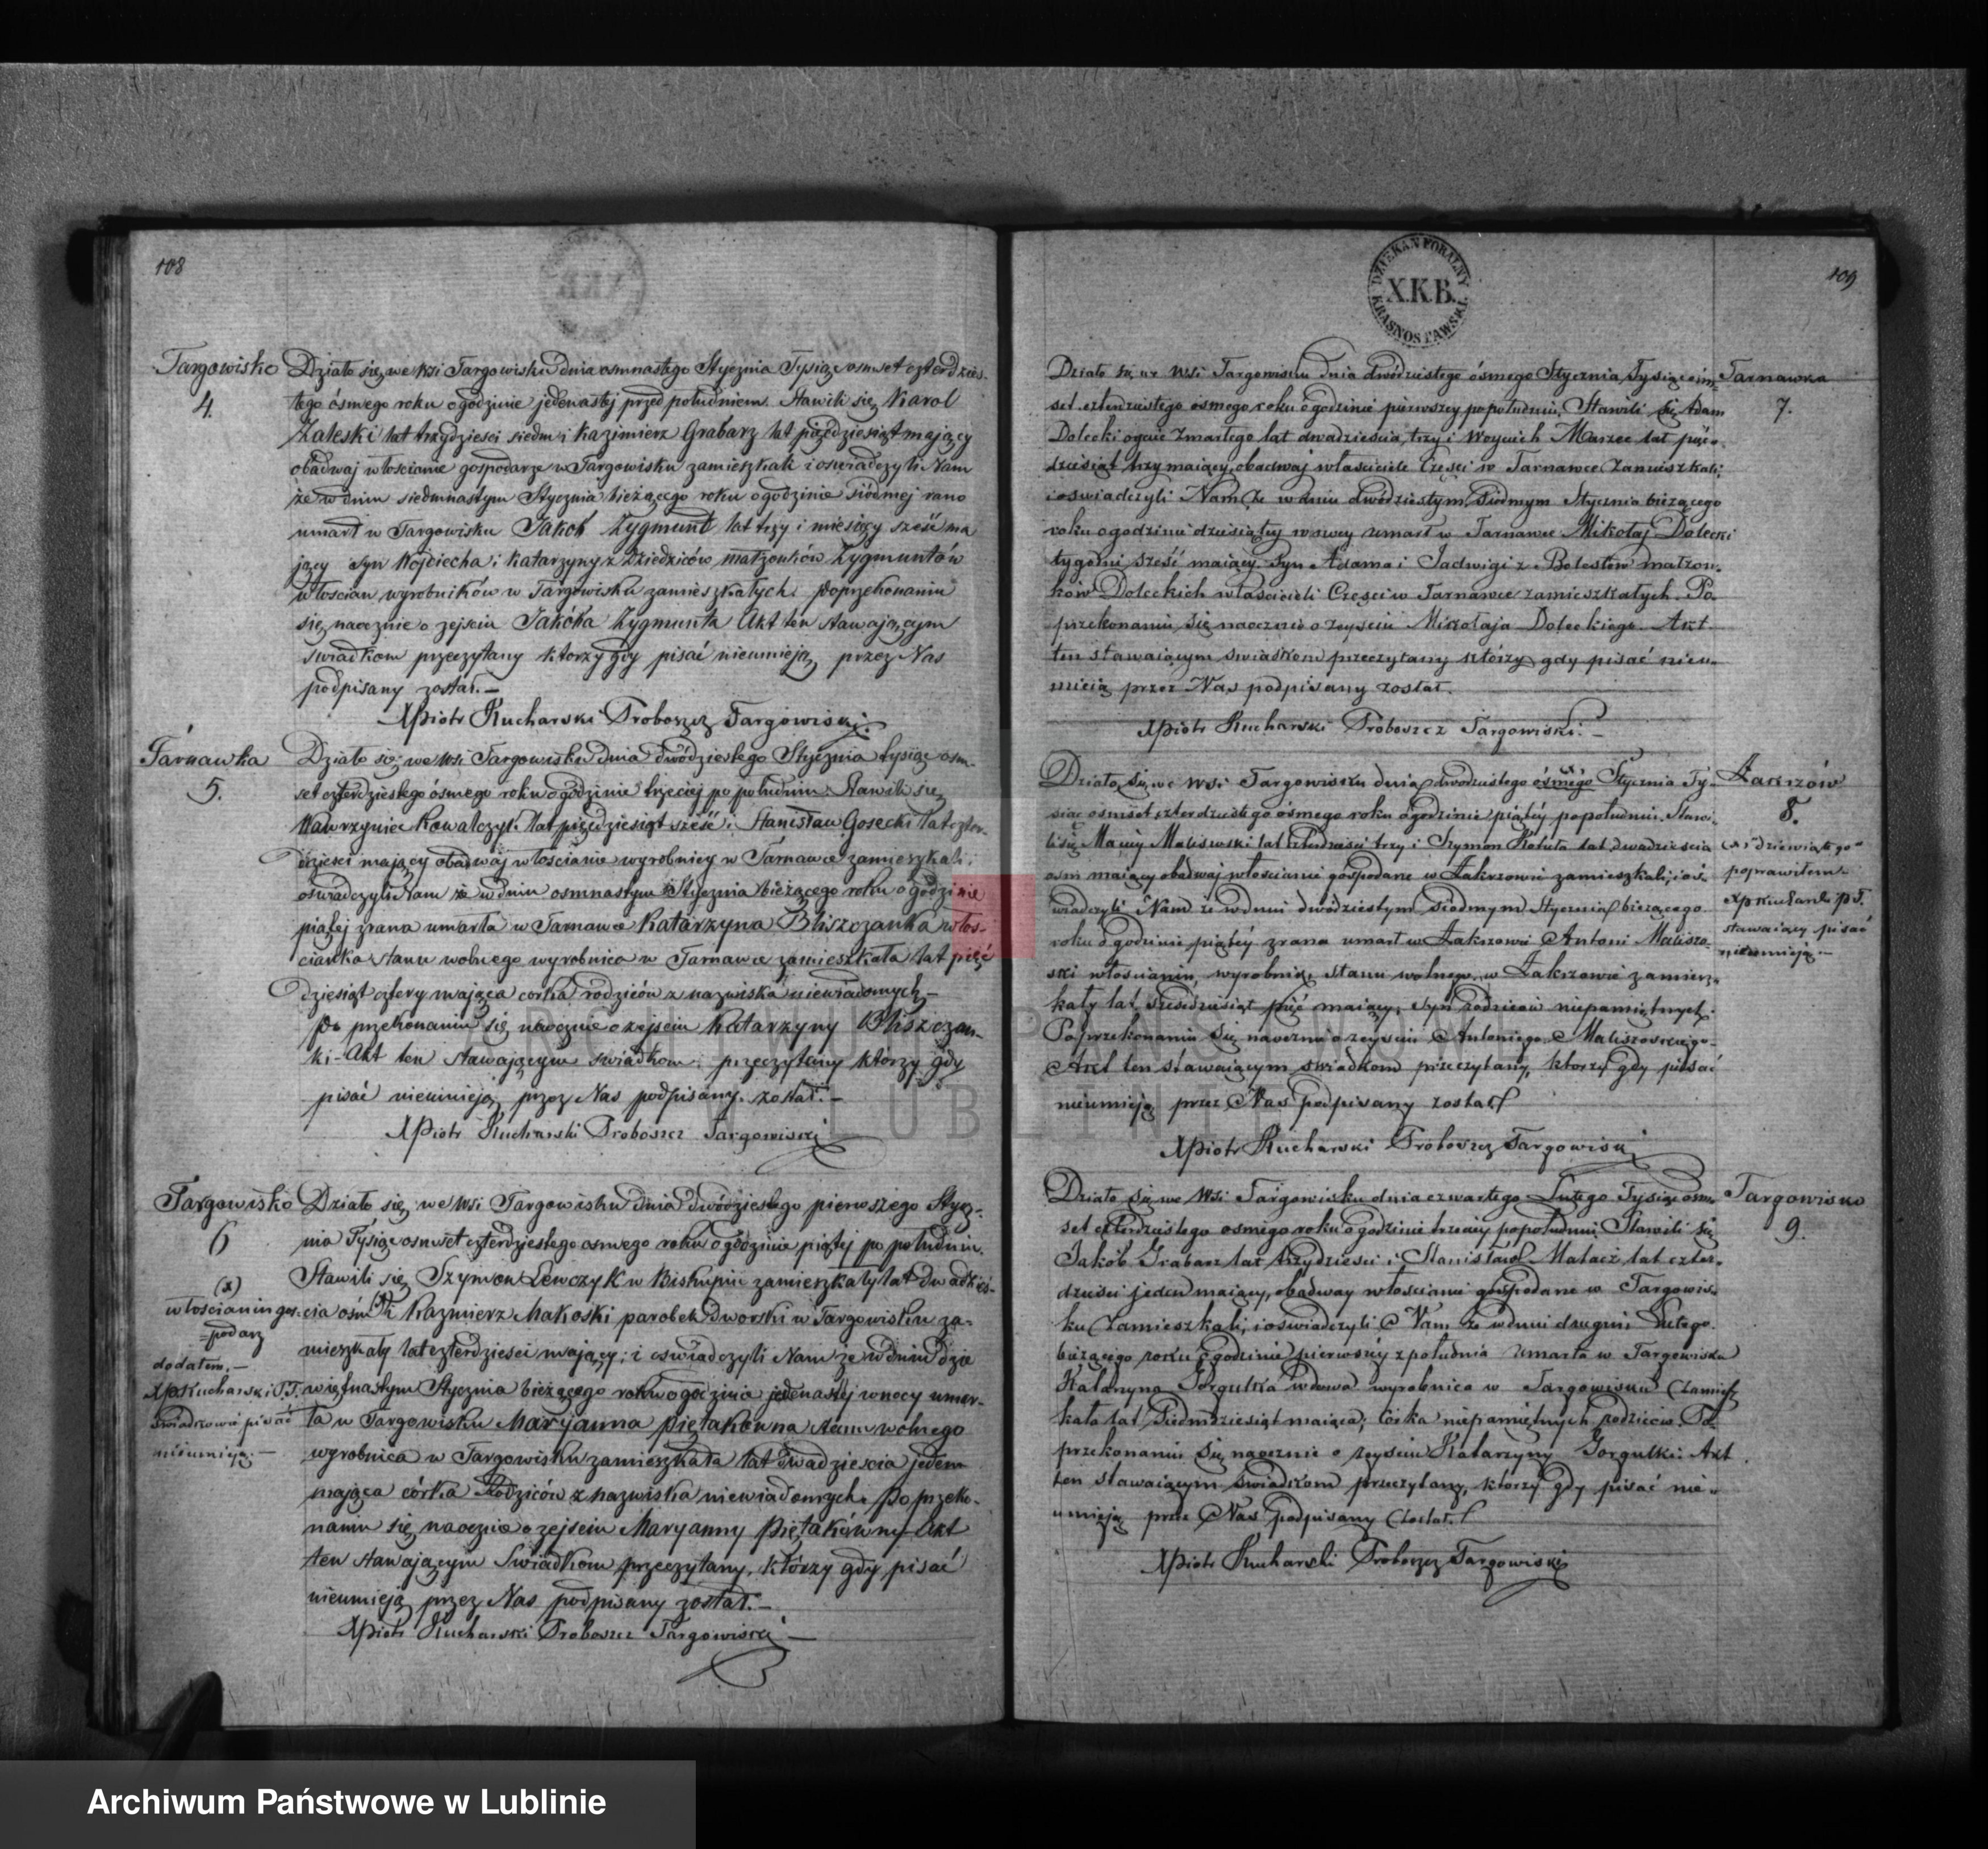 108
Targowisko
4.
Działo się we wsi Targowisku dnia osmnastego Stycznia Tysiąc osmset czterdzies-
tego ósmego roku o godzinie jedenastej przed południem. Stawili się Karol
Zaleski lat trzydziesci siedm i Kazimierz Grabarz lat pięćdziesiąt mający
obadwaj włoscianie gospodarze w Targowisku zamieszkali i oswiadczyli Nam
że w dniu siedmnastym Stycznia bieżącego roku o godzinie siódmej rano
umarł w Targowisku Jakób Zygmunt lat trzy i miesięcy sześć ma
jący syn Wojciecha i Katarzyny z Dziedziców małżonków Zygmuntów
włoscian wyrobników w Targowisku zamieszkałych. Po przekonaniu
się naocznie o zejsciu Jakóba Zygmunta Akt ten stawającym
swiadkom przeczytany ktorzy gdy pisać nieumieją przez Nas
podpisany został.–
XPiotr Kucharski Proboszcz Targowiski.
Tarnawka
5.
Działo się we wsi Targowisku dnia dwódziestego Stycznia tysiąc osm-
set czterdziestego ósmego roku o godzinie trzeciej po południu. Stawili się
Wawrzyniec Kowalczyk lat pięćdziesiąt sześć i Stanisław Gosecki lat czter-
dziesci mający obadwaj włoscianie wyrobnicy w Tarnawce zamieszkali i
oswiadczyli Nam że w dniu osmnastym Stycznia bieżącego roku o godzinie
piątej zrana umarła w Tarnawce Katarzyna Bliszczanka włos-
cianka stanu wolnego wyrobnica w Tarnawce zamieszkała lat pięć
dziesiąt cztery mająca corka rodziców z nazwiska niewiadomych–
Po przekonaniu się naocznie o zejsciu Katarzyny Bliszczan-
ki– Akt ten stawającym swiadkom przeczytany którzy gdy
pisać nieumieją przez Nas podpisany został.–
XPiotr Kucharski Proboszcz Targowiski
Targowisko
6
(x)
włoscianin gos-
=podarz
dodałem.–
XPKucharski P.T.
swiadkowie pisać
nieumieją–
Działo się we wsi Targowisku dnia dwódziestego pierwszego Stycz-
nia Tysiąc osmset czterdziestego osmego roku o godzinie piątej po południu.
Stawili się Szymon Lewczyk w Biskupiu zamieszkały lat dwadzieś-
cia ośm (x) i Kazmierz Makoski parobek dworski w Targowisku za-
mieszkały lat czterdziesci mający; i oswiadczyli Nam że w dniu dzie
więtnastym Stycznia bieżącego roku o godzinie jedenastej w nocy umar-
ła w Targowisku Maryanna Piętakówna stanu wolnego
wyrobnica w Targowisku zamieszkała lat dwadzieścia jeden
mająca córka Rodziców z nazwiska niewiadomych. Po przeko-
naniu się naocznie o zejsciu Maryanny Piętakówny– Akt
ten stawającym Swiadkom przeczytany, którzy gdy pisać
nieumieją przez Nas podpisany został.–
XPiotr Kucharski Proboszcz Targowiski–
DZIEKAN FORALNY
X.K.B.
KRASNOSTAWSKI
109
Działo się we Wsi Targowisku dnia dwódziestego ósmego Stycznia, Tysiąc ośm-
set czterdziestego ósmego roku o godzinie pierwszey popołudniu, Stawili się Adam
Dolecki oyciec zmarłego lat dwadzieścia trzy i Woyciech Marzec lat pięć-
dziesiąt trzy maiący, obadwaj właściciele Częsci w Tarnawce zamieszkali,
i oswiadczyli Nam że w dniu dwódziestym siodmym Stycznia bieżącego
roku o godzinie dziesiątey w nocy umarł w Tarnawce Mikołaj Dolecki
tygodni sześć maiący Syn Adama i Jadwigi z Bolestów małżon-
ków Doleckich właścicieli Częsci w Tarnawce zamieszkałych. Po-
przekonaniu się naocznie o zeysciu Mikołaja Doleckiego. Akt
ten stawaiącym swiadkom przeczytany którzy gdy pisać nieu-
mieią przez Nas podpisany został.
XPiotr Kucharski Proboszcz Targowiski.–
Tarnawka
7.
Działo się we Wsi Targowisku dnia dwodziestego ósmego (x) Stycznia Ty-
siąc ośmset czterdziestego ósmego roku o godzinie piątéy popołudniu. Stawi-
li się Maciey Maliszewski lat czterdzieści trzy i Szymon Kotuła lat dwadzieścia
ośm maiący obadwaj włościanie gospodarze w Zakrzowie zamieszkali, i oś-
wiadczyli Nam że w dniu dwódziestym siodmym Stycznia bieżącego
roku o godzinie piątéy zrana umarł w Zakrzowie Antoni Malisze-
ski włościanin, wyrobnik, stanu wolnego, w Zakrzowie zamiesz-
kały lat sześcdziesiąt pięć maiący, Syn rodziców niepamiętnych.
Po przekonaniu się naocznie o zeysciu Antoniego Maliszewskiego-
Akt ten stawaiącym swiadkom przeczytany, ktorzy gdy pisać
nieumieją przez Nas podpisany został
XPiotr Kucharski Proboszcz Targowiski
Zakrzów
8.
(x) dziewiątego
poprawiłem
XPKucharski P.T.
stawaiący pisać
nieumieją–
Działo się we Wsi Targowisku dnia czwartego Lutego Tysiąc ośm-
set czterdziestego osmego roku o godzinie trzeciey popołudniu, Stawili się
Jakób Grabarz lat trzydziesci i Stanisław Małacz lat czter-
dzieści jeden maiący, obadway włościanie gospodarze w Targowis-
ku Zamieszkali, i oświadczyli Nam że w dniu drugim Lutego
bieżącego roku o godzinie pierwszéy z południa umarła w Targowisku
Katarzyna Gorgulka wdowa wyrobnica w Targowisku Zamiesz
kała lat siedmdziesiąt maiąca, Córka niepamiętnych rodziców. Po-
przekonaniu się naocznie o zeysciu Katarzyny Gorgulki. Akt
ten stawaiącym swiadkom przeczytany, którzy gdy pisać nie-
umieją przez Nas podpisany Został.
XPiotr Kucharski Proboszcz Targowiski
Targowisko
9.
ARCHIWUM PAŃSTWOWE
W LUBLINIE
Archiwum Państwowe w Lublinie